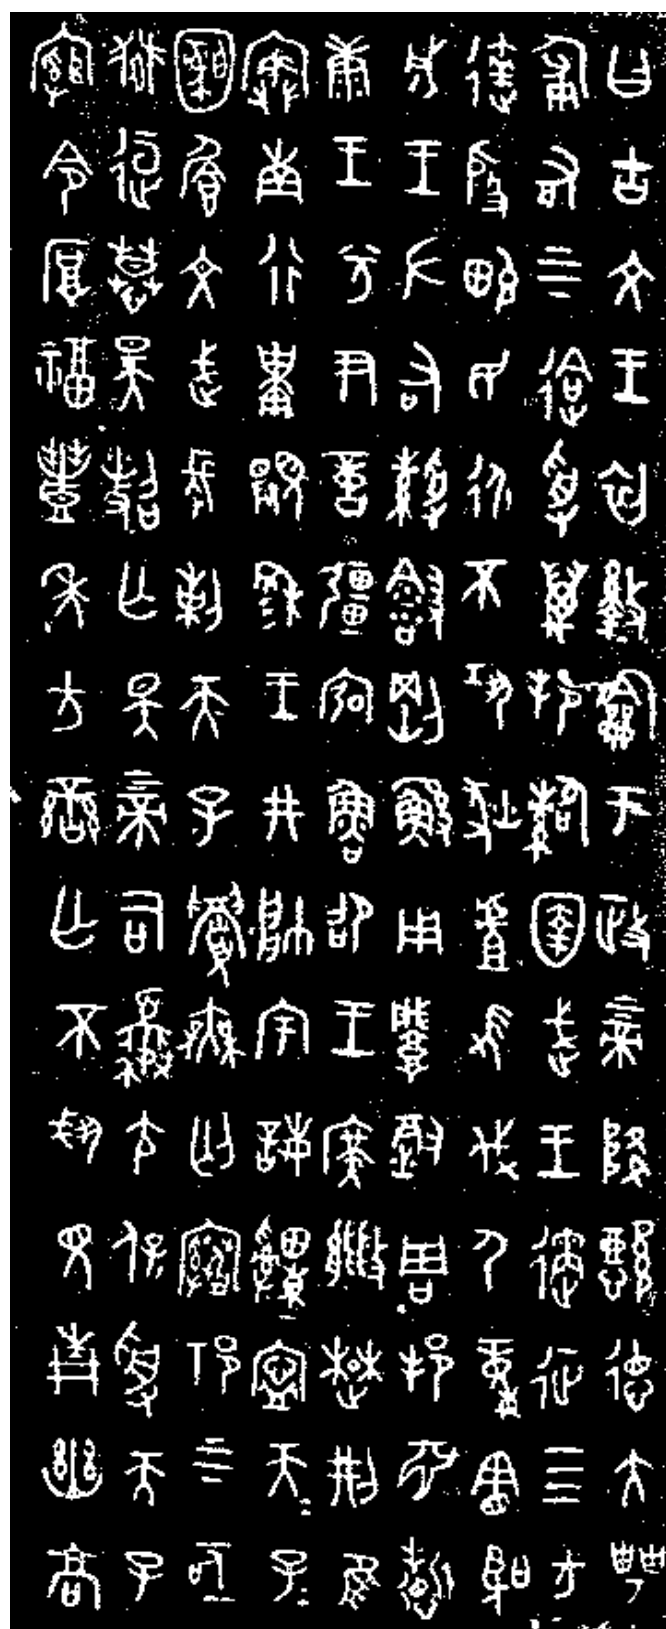 曰古文王初盭龢于政上帝降懿德大甹
匍有上下迨受萬邦䚄圉武王遹征四方
達殷畯民永不巩狄虘𢓊伐尸童憲聖
成王左右綬會剛鯀用肇徹周邦淵哲
康王分尹億疆宏魯卲王廣敝楚荊隹
狩南行祗顯穆王井帥宇誨申寧天子
圖纘文武長剌天子眉無匄𩁹祁上下亟
獄桓慕昊照亡斁上帝司夒尢保受天子
綰令厚福豐年方蠻亡不𡖊見青幽高